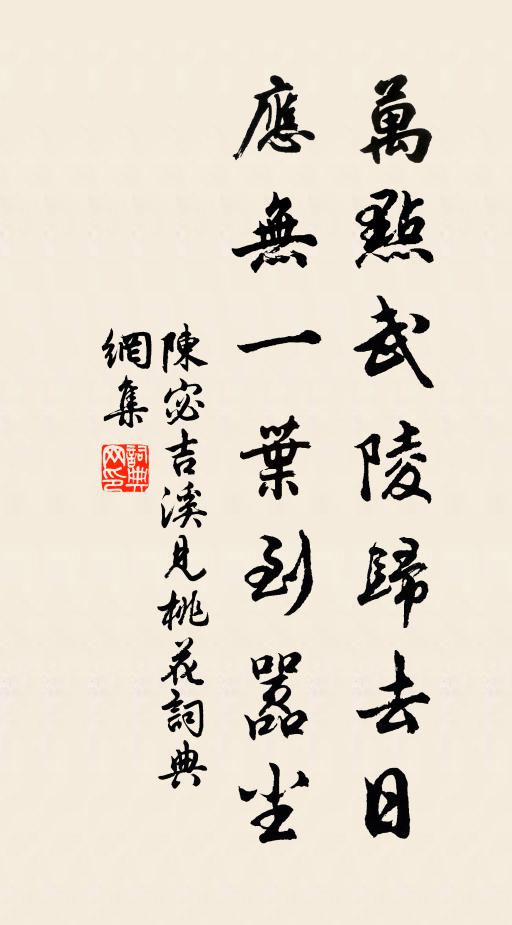 萬點武陵歸去日
應無一葉到囂尘
陳宓吉溪見桃花詞典
網集
詞典
网印